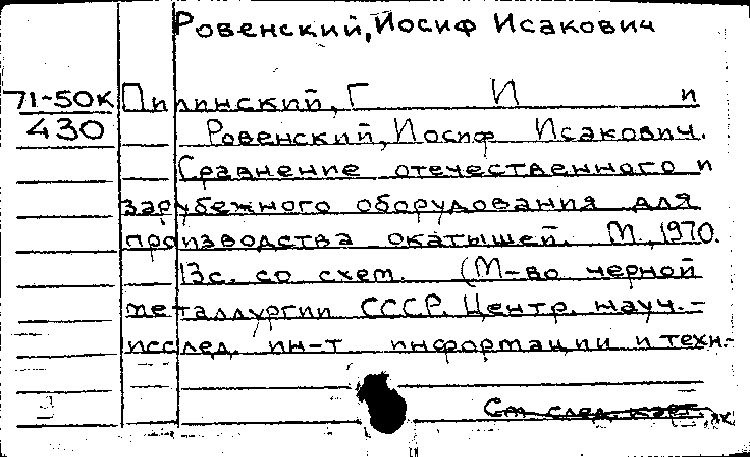 Ровенский, Иосиф Исакович
71-50К Пилинский, Г И и
430 Ровенский, Иосиф Исакович.
Сравнение отечественного и
зарубежного оборудования для
производства окатышей. М., 1970.
13с. со схем. (М-во черной
металлургии СССР. Центр. науч.-
исслед. ин-т информации и техн.-
См. след. карт.